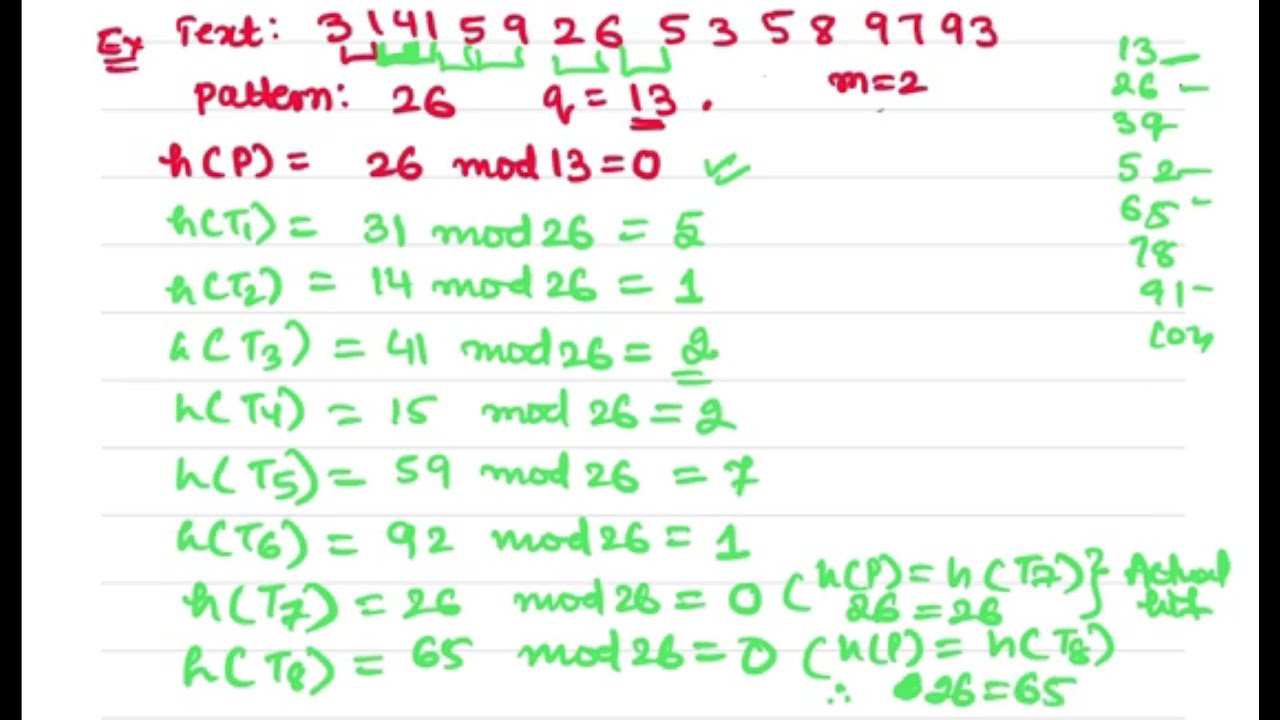 Ex Text: 3 1 4 1 5 9 2 6 5 3 5 8 9 7 9 3
pattern: 26 q = 13 . m=2
h(P) = 26 mod 13 = 0
h(T1) = 31 mod 26 = 5
h(T2) = 14 mod 26 = 1
h(T3) = 41 mod 26 = 2
h(T4) = 15 mod 26 = 2
h(T5) = 59 mod 26 = 7
h(T6) = 92 mod 26 = 1
h(T7) = 26 mod 26 = 0 ( h(P) = h(T7) } Actual
26 = 26 hit
h(T8) = 65 mod 26 = 0 ( h(P) = h(T8)
∴ 26 = 65
13
26
39
52
65
78
91
104